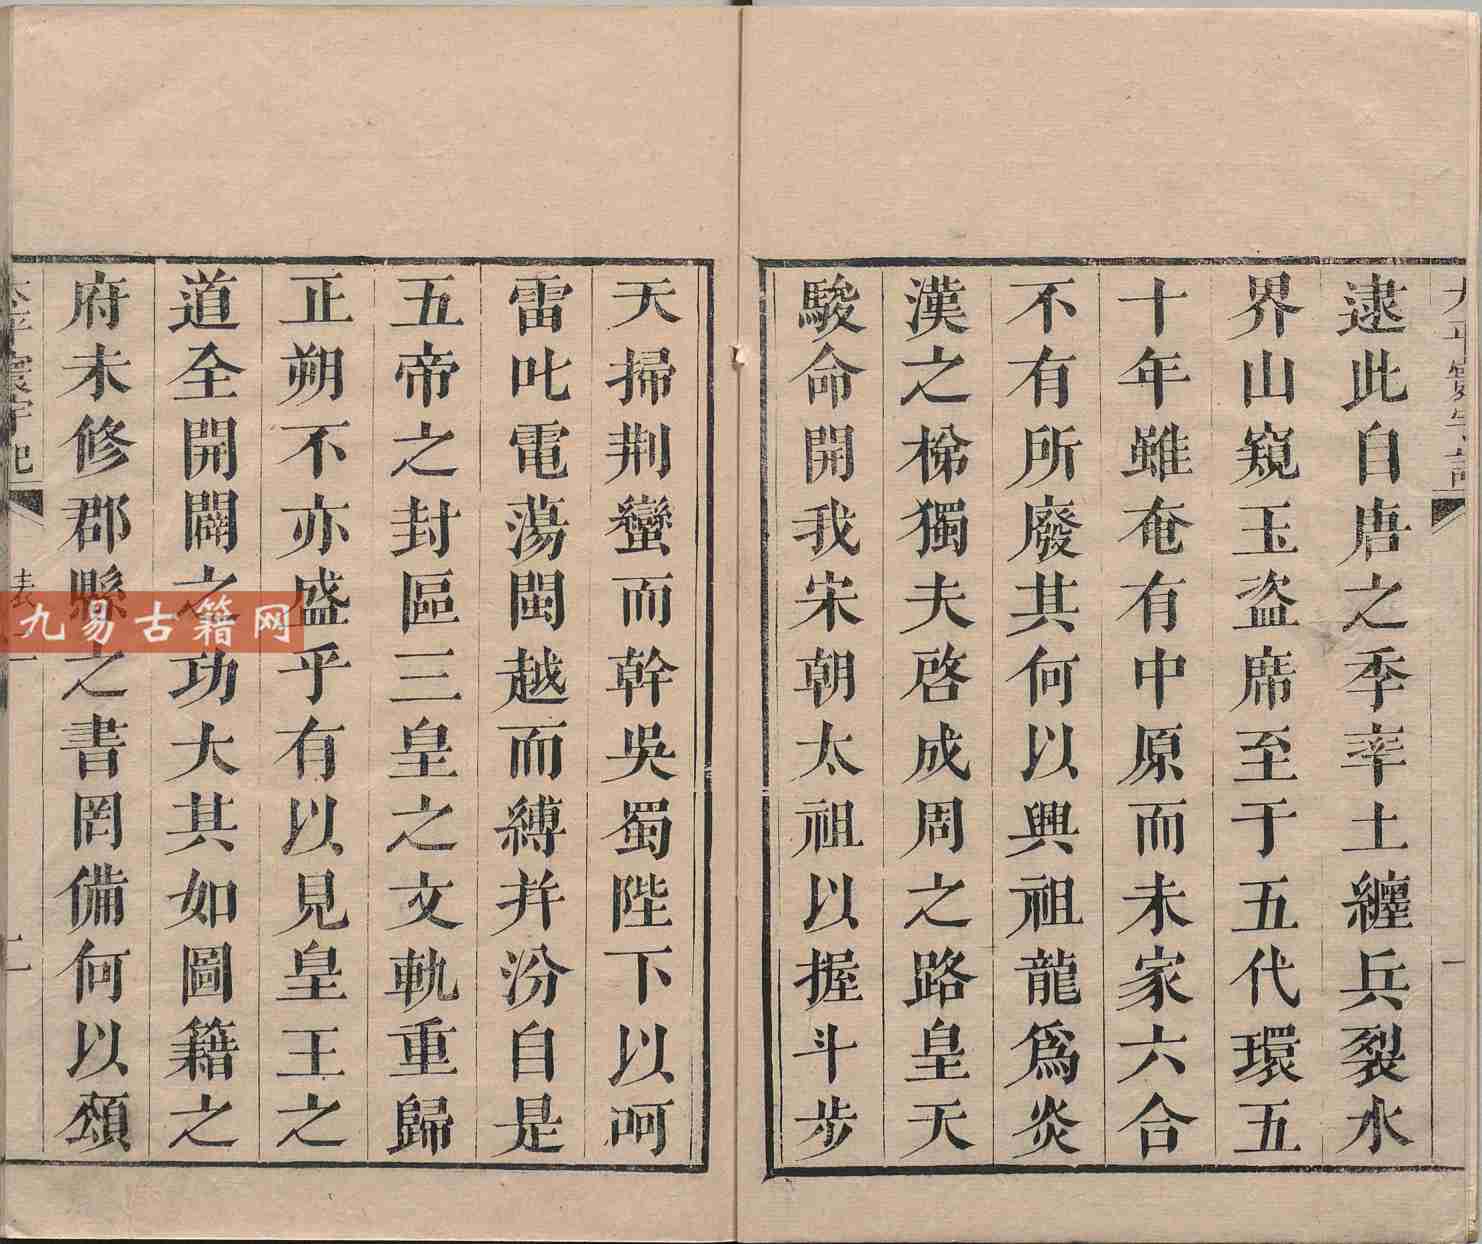 逮此自唐之季率土纏兵裂水
界山窺玉盗席至于五代環五
十年雖奄有中原而未家六合
不有所廢其何以興祖龍爲炎
漢之梯獨夫啓成周之路皇天
駿命開我宋朝太祖以握斗步
天掃荆蠻而幹吳蜀陛下以呵
雷叱電蕩閩越而縛并汾自是
五帝之封區三皇之文軌重歸
正朔不亦盛乎有以見皇王之
道全開闢之功大其如圖籍之
府未修郡縣之書罔備何以頌
太平寰宇記
表
二
九易古籍网